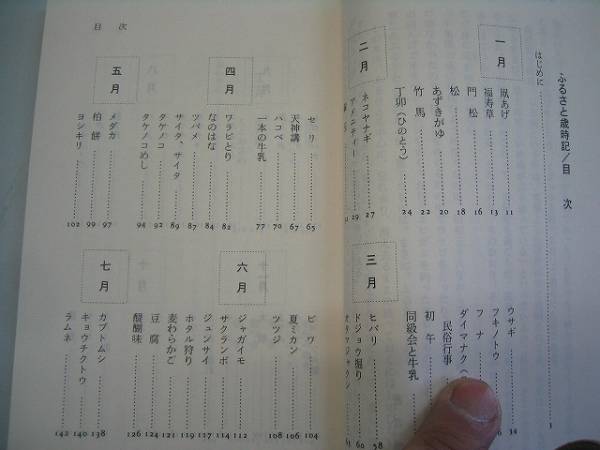 ふるさと歳時記/目 次
はじめに
一月
凧あげ 11
福寿草 13
門松 16
松 18
あずきがゆ 20
竹馬 22
丁卯(ひのとう) 24
二月
ネコヤナギ 27
アメニティー 29
ウサギ 34
フキノトウ
フナ
ダイマナク
民俗行事
初午
同級会と牛乳
三月
ヒバリ 58
ドジョウ掘り 61
オタマジャクシ 63
目 次
セリ 65
天神講 67
ハコベ 70
一本の牛乳 77
四月
ワラビとり 82
なのはな 84
ツバメ 87
サイタ、サイタ 89
タケノコ 92
タケノコめし 94
五月
メダカ 97
柏餅 99
ヨシキリ 102
ビワ 104
夏ミカン 106
ツツジ 108
六月
ジャガイモ 112
サクランボ 114
ジュンサイ 117
ホタル狩り 119
麦わらかご 121
豆腐 124
醍醐味 126
七月
カブトムシ 138
キョウチクトウ 140
ラムネ 142